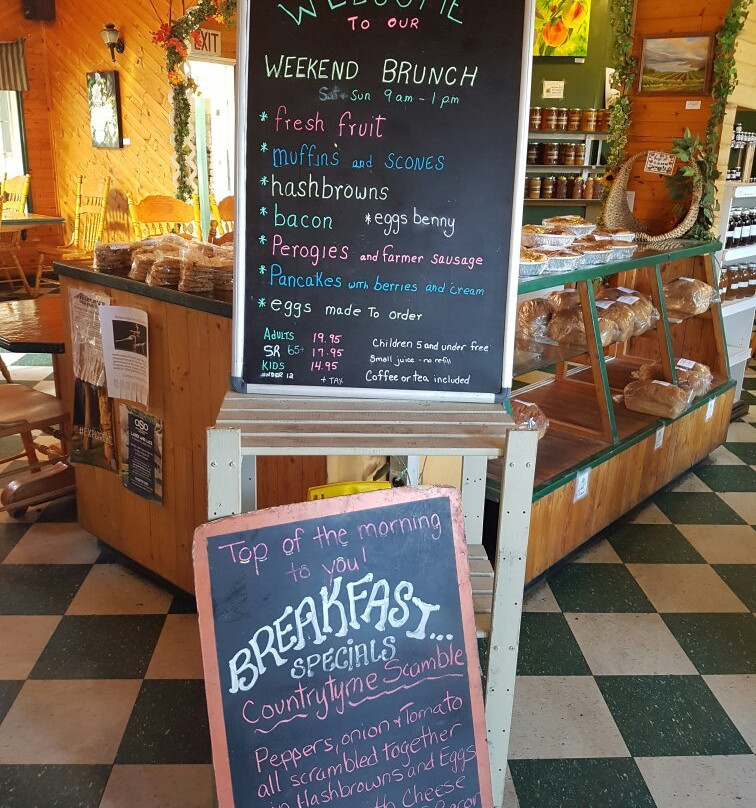 WELCOME
TO OUR
EXIT
WEEKEND BRUNCH
Sat + Sun 9am - 1pm
* fresh fruit
* muffins and SCONES
* hashbrowns
* bacon * eggs benny
* Perogies and farmer sausage
* Pancakes with berries and cream
* eggs made To order
ADULTS 19.95
SR 65+ 17.95
KIDS 14.95
UNDER 12
+ TAX
Children 5 and under free
Small juice - no refill
Coffee or tea included
Top of the morning
to you!
BREAKFAST...
SPECIALS
Countrytyme Scramble
Peppers, onion + Tomato
all scrambled together
in Hashbrowns and Eggs
Cheese
Bacon